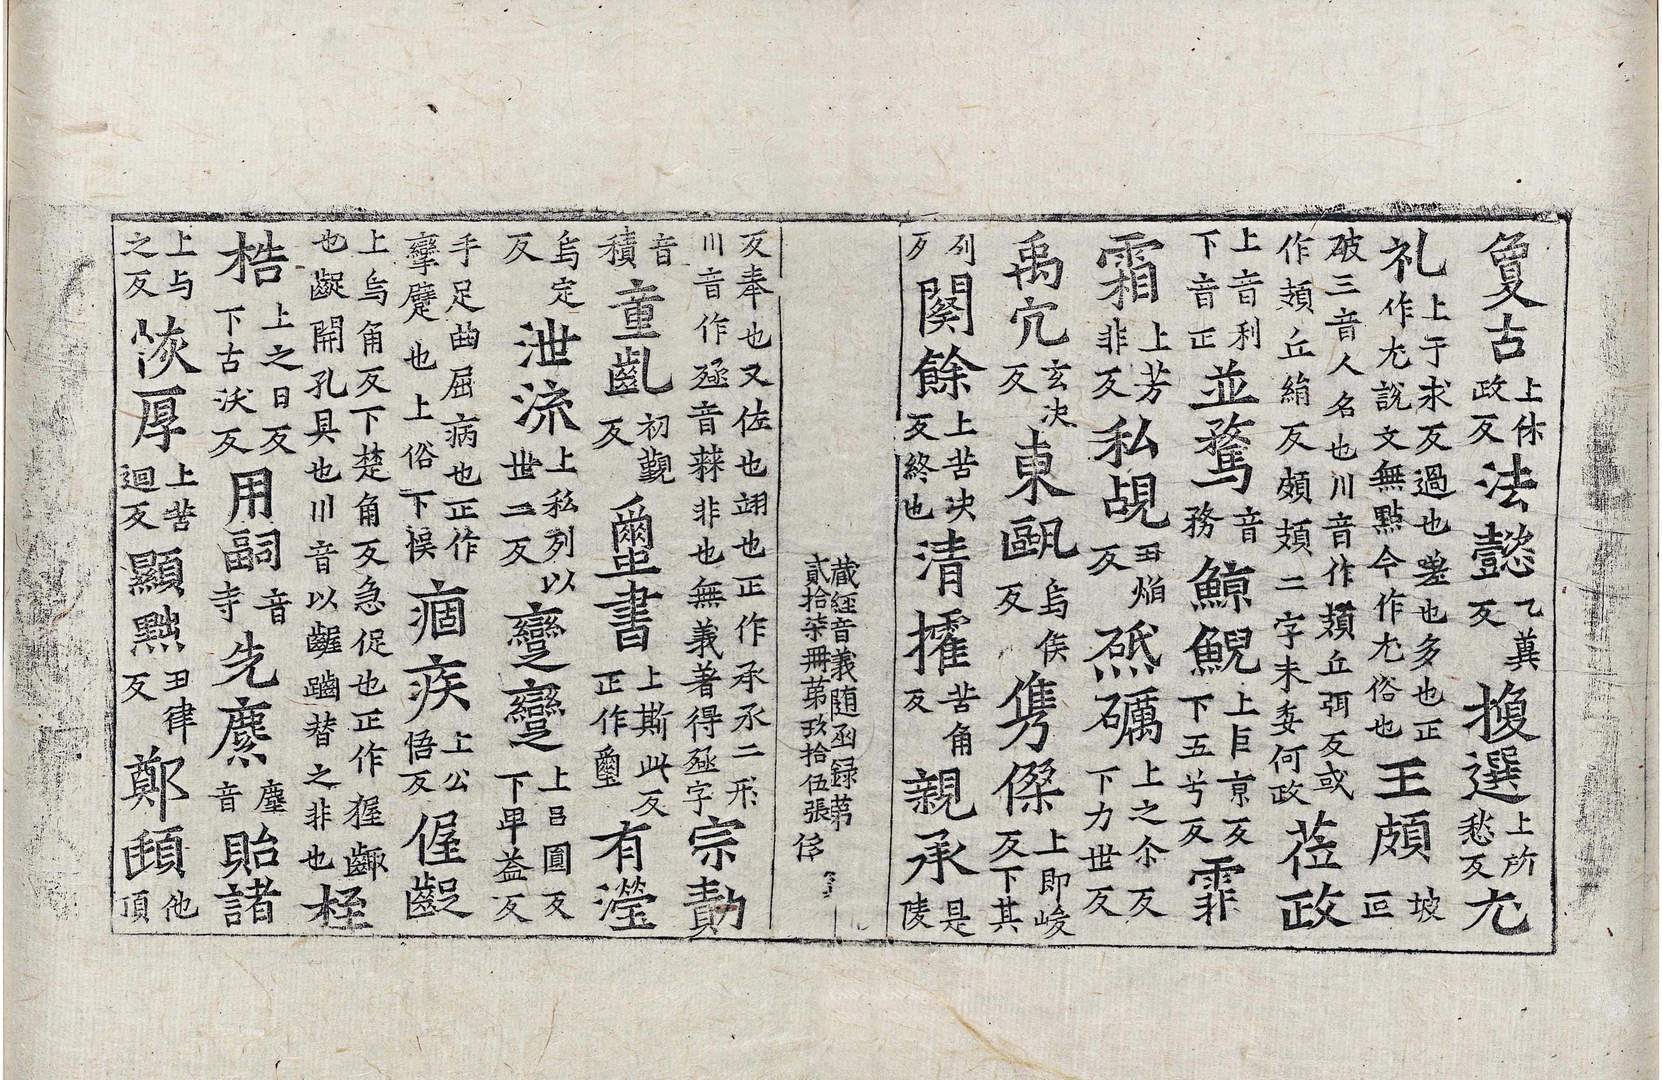 敻古上休政反法懿乙冀反㨕選上所愁反尤
礼上于求反過也㘴也多也正作尤說文無點今作尤俗也王頗坡叵
破三音人名也川音作頍丘弭反或作頍丘絹反頗頍二字未委何政莅政
上音利下音正並騖音務鯨鯢上巨京反下五兮反霏
霜上芳非反私覘丑焰反砥礪上之尒反下力世反
禹宂玄决反東甌烏侯反雋傑上即峻反下其
列反闋餘上苦决反終也清搉苦角反親承是陵
反奉也又佐也翊也正作承承二形川音作㞼音蕀非也無義著得㞼字宗勣
音積童齓初覲反壐書上斯此反正作璽有瀅
烏定反泄流上私列以世二反癴癴上呂圓反下甲益反
手足曲屈病也正作攣躄也上俗下悮痼疾上公悟反偓齪
上烏角反下楚角反急促也正作握齱也齪開孔具也川音以齷齺替之非也桎
梏上之日反下古沃反用嗣音寺先㷊塵音貽諸
上与之反恢厚上苦迴反顯黜丑律反鄭頲他頂
藏經音義隨函録第貳拾柒冊第玖拾伍張 俗